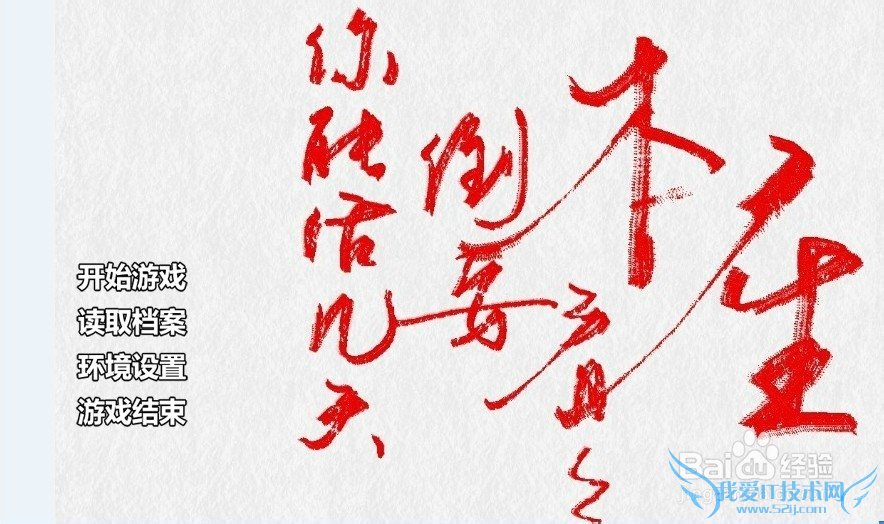 本
倒要看
你能活几天
开始游戏
读取档案
环境设置
游戏结束
Baidu 经验
我爱IT技术网
www.52ij.com